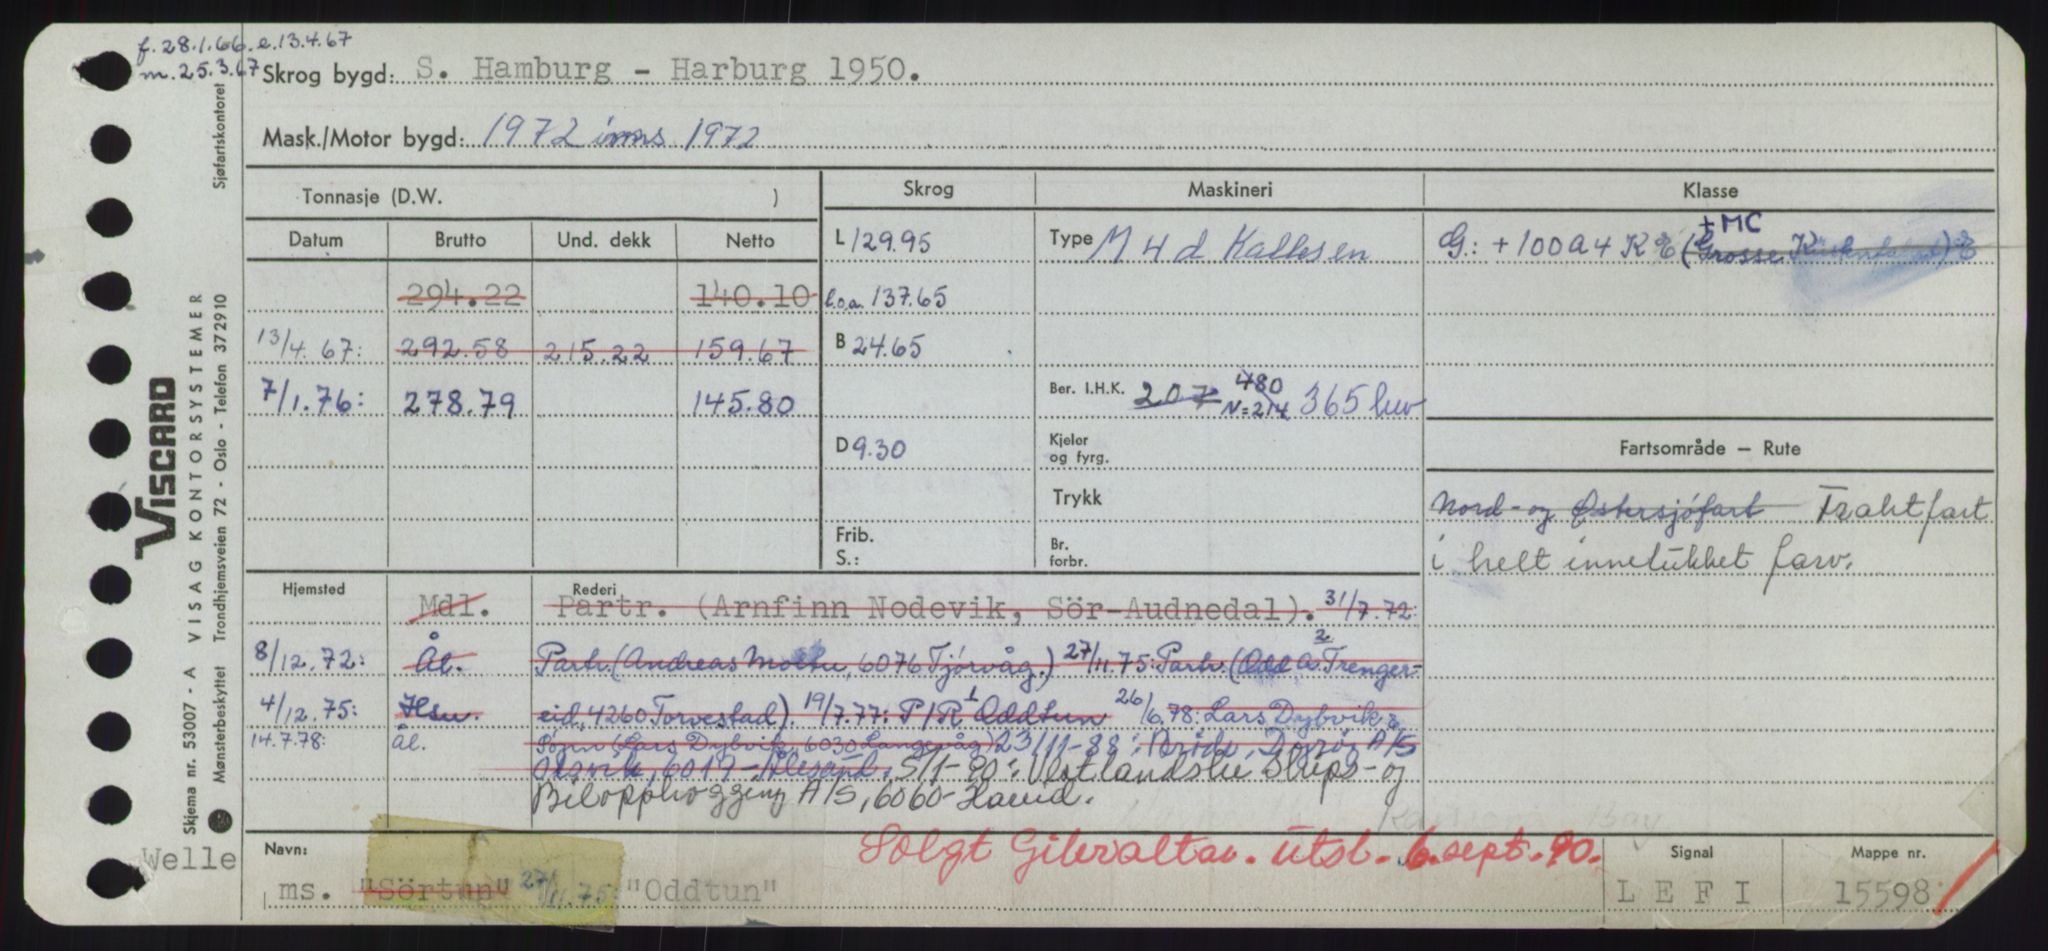 f. 28.1.66. e. 13.4.67
m. 25.3.67
Skrog bygd: S. Hamburg - Harburg 1950.
Mask./Motor bygd: 1972 inns 1972
Tonnasje (D.W. )
Skrog
Maskineri
Klasse
Datum Brutto Und. dekk Netto
L 129.95
Type M 4 d Kallesen
+MC
G: + 100 A 4 K E (Grosse ) E
294.22 140.10
l.o.a. 137.65
13/4.67: 292.58 215.22 159.67
B 24.65
7/1.76: 278.79 145.80
Ber. I.H.K. 207 480 N=214 365 kw
D 9.30
Kjeler og fyrg.
Fartsområde — Rute
Trykk
Nord- og Østersjöfart Fraktfart
i helt innelukket farv.
Frib.
S.:
Br. forbr.
Hjemsted
Rederi
Mdl. Partr. (Arnfinn Nodevik, Sör-Audnedal). 31/7.72:
8/12.72: Ål. Partr. (Andreas Moltu, 6076 Tjørvåg.) 27/11.75: Partr. (Odd A. 2 Trenger-
4/12.75: Hsu. eid, 4260 Torvestad). 19/7.77: P/R 1 Oddtun 26/6.78: Lars Dybvik &
14.7.78: Ål. Sønn (Lars Dybvik, 6030 Langevåg) 23/11-88:
6017-Ålesund. 5/1-90: Vestlandske Skips- og
Bilopphogging A/S, 6060-Hareid.
Solgt Gibraltar. Utsl. 6. sept. 90.
Navn:
ms. "Sörtun" 27/11.75: "Oddtun"
Signal
LEFI
Mappe nr.
15598
Welle
VISCARD
VISAG KONTORSYSTEMER
Skjema nr. 53007 - A
Mønsterbeskyttet Trondhjemsveien 72 - Oslo - Telefon 372910
Sjøfartskontoret